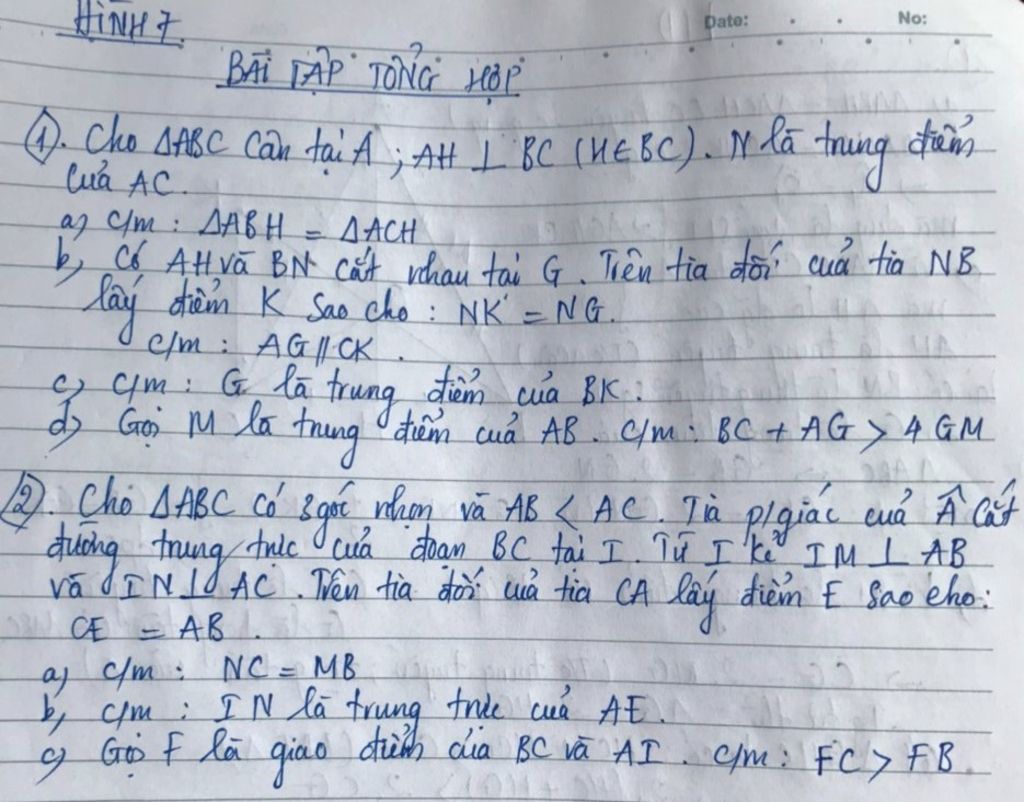 HÌNH 7.
Date: No:
BÀI TẬP TỔNG HỢP
①. Cho ΔABC cân tại A ; AH ⊥ BC (H∈BC). N là trung điểm
của AC.
a) c/m : ΔABH = ΔACH
b, Có AH và BN cắt nhau tại G. Trên tia đối của tia NB
lấy điểm K sao cho : NK = NG.
c/m : AG // CK.
c) c/m : G là trung điểm của BK.
d) Gọi M là trung điểm của AB. c/m : BC + AG > 4 GM
②. Cho ΔABC có 3 góc nhọn và AB < AC. Tia p/giác của Â cắt
đường trung trực của đoạn BC tại I. Từ I kẻ IM ⊥ AB
và IN ⊥ AC. Trên tia đối của tia CA lấy điểm E sao cho:
CE = AB.
a) c/m : NC = MB
b, c/m : IN là trung trực của AE.
c) Gọi F là giao điểm của BC và AI. c/m : FC > FB